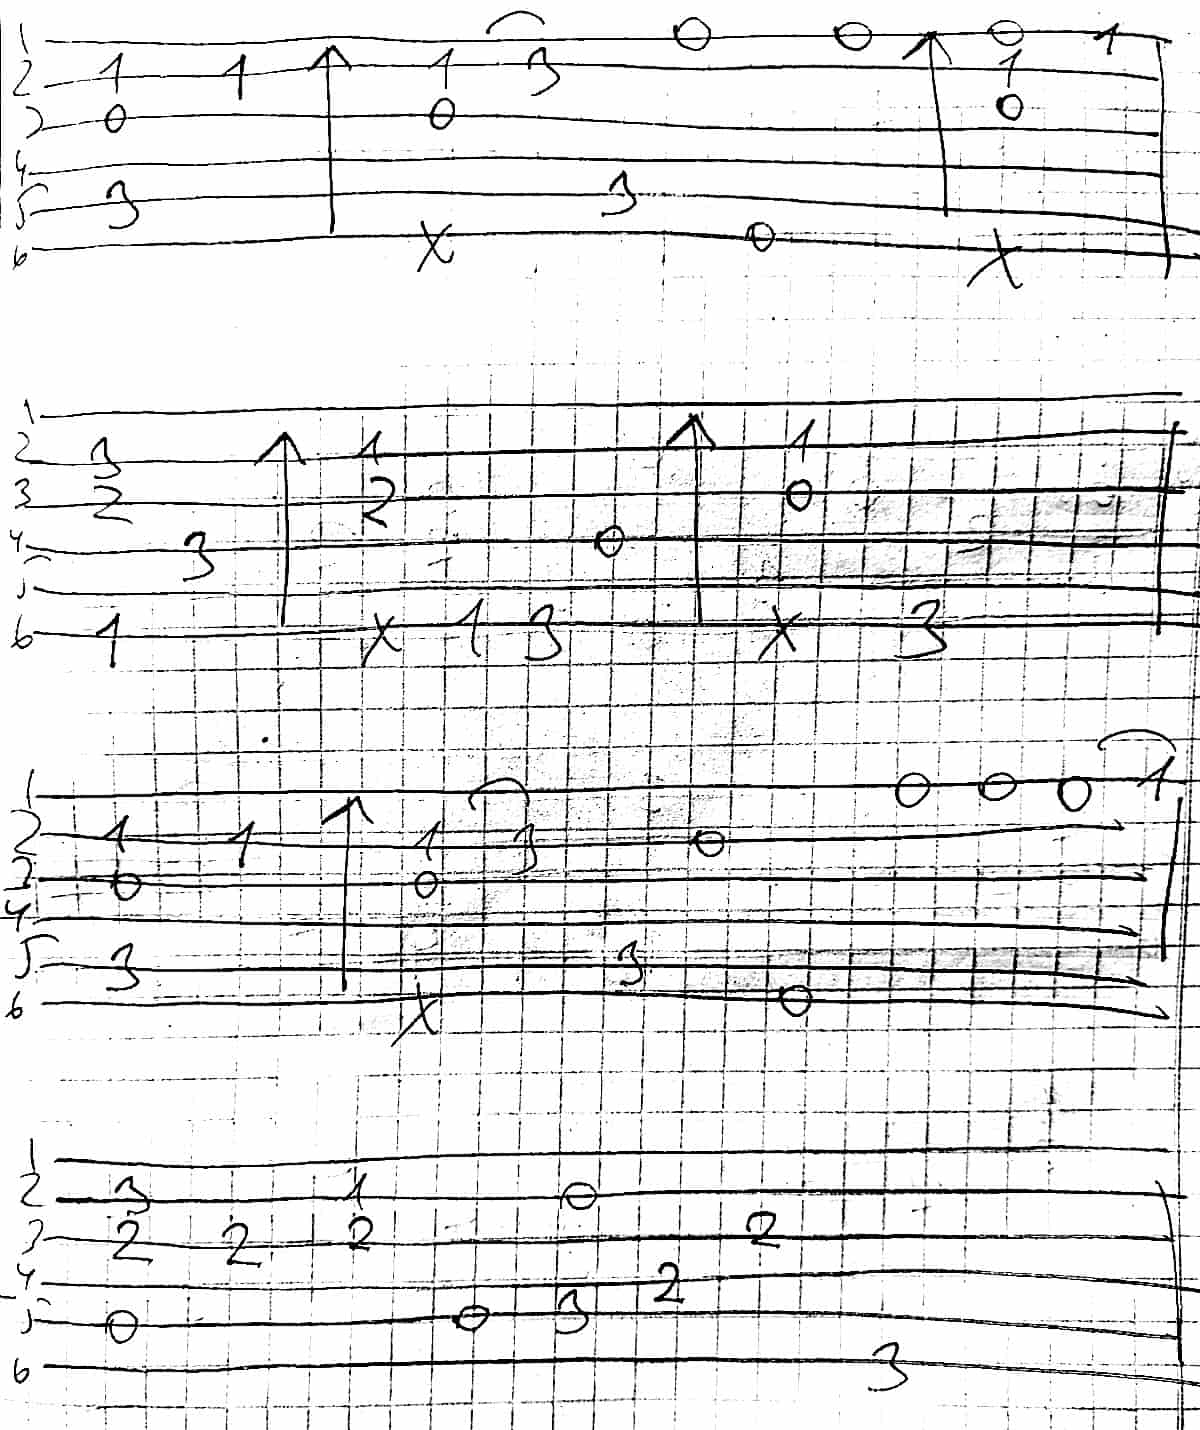 1 0 0 0 1
2 1 1 1 3 1
3 0 0 0
4
5 3 3
6 X 0 X
1
2 3 1 1
3 2 2 0
4 3 0
5
6 1 X 1 3 X 3
1 0 0 0 1
2 1 1 1 3 0
3 0 0
4
5 3 3
6 X 0
1
2 3 1 0
3 2 2 2 2
4 2
5 0 0 3
6 3